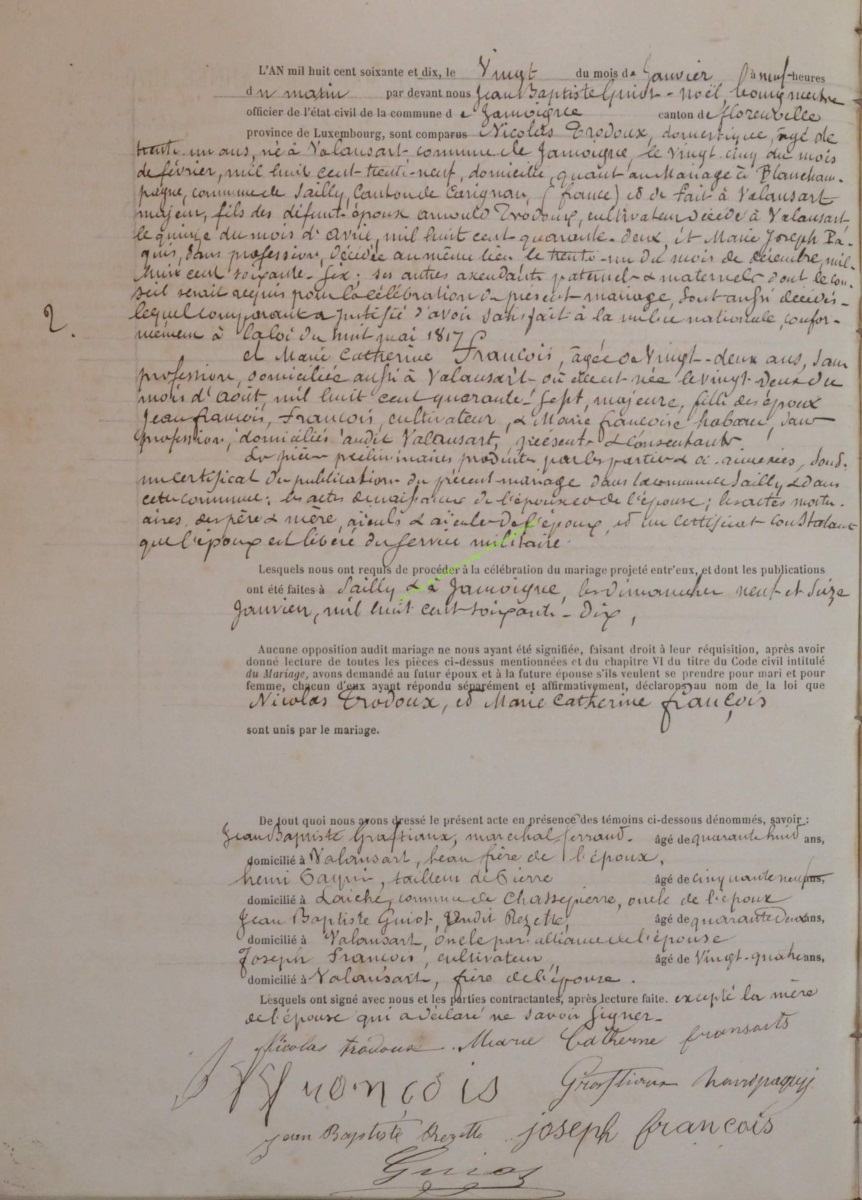 L'AN mil huit cent soixante et dix, le Vingt du mois de Janvier, à neuf heures
du matin par devant nous Jean Baptiste Guiot - Noël, bourgmestre
officier de l'état civil de la commune de Jamoigne canton de florenville
province de Luxembourg, sont comparus Nicolas Trodoux, domestique, agé de
trente un ans, né à Valansart commune de Jamoigne, le vingt cinq du mois
de février, mil huit cent trente-neuf, domicilié, quant au Mariage à Blancham-
pagne, commune de Sailly, Canton de Carignan, (france) et de fait à Valansart
majeur, fils des défunt époux arnould Trodoux, cultivateur décédé à Valansart
le quinze du mois d'avril, mil huit cent quarante-deux, et Marie Joseph Pa-
quis, sans profession, décédée au même lieu le trente-un du mois de décembre, mil-
huit cent soixante-six; ses autres ascendants paternels & maternels dont le con-
seil serait requis pour la célébration du présent mariage, sont aussi décédés
2. lequel comparant a justifié d'avoir satisfait à la milice nationale, confor-
mément à la loi du huit mai 1817
et Marie Catherine François, âgée de Vingt-deux ans, sans
profession, domiciliée aussi à Valansart où elle est née le vingt deux du
mois d'Août, mil huit cent quarante-sept, majeure, fille des époux
Jean françois, François, cultivateur, & Marie françoise habaru, sans
profession, domiciliés audit Valansart, présents & consentants.
Les pièces préliminaires produites par les parties & ci-annexées, sont
un certificat de publication du présent mariage dans la commune Sailly & dans
cette commune; les actes de naissance de l'époux et de l'épouse; les actes mortu-
aires des père & mère, aïeuls & aïeules de l'époux, et un certificat constatant
que l'époux est libéré du service militaire.
Lesquels nous ont requis de procéder à la célébration du mariage projeté entr'eux, et dont les publications
ont été faites à Sailly & à Jamoigne, les Dimanches neuf et Seize
Janvier, mil huit cent soixante-Dix,
Aucune opposition audit mariage ne nous ayant été signifiée, faisant droit à leur réquisition, après avoir
donné lecture de toutes les pièces ci-dessus mentionnées et du chapitre VI du titre du Code civil intitulé
du Mariage, avons demandé au futur époux et à la future épouse s'ils veulent se prendre pour mari et pour
femme, chacun d'eux ayant répondu séparément et affirmativement, déclarons au nom de la loi que
Nicolas Trodoux, et Marie Catherine françois
sont unis par le mariage.
De tout quoi nous avons dressé le présent acte en présence des témoins ci-dessous dénommés, savoir:
Jean Baptiste Grastiaux, maréchal ferrand. âgé de quarante huit ans,
domicilié à Valansart, beau frère de l'époux,
henri tailleur de Pierre âgé de cinquante neuf ans,
domicilié à Laiche, commune de Chassepierre, oncle de l'époux
Jean Baptiste Guiot, dit Rezette, âgé de quarante deux ans,
domicilié à Valansart, oncle par alliance de l'épouse
Joseph François, cultivateur, âgé de Vingt-quatre ans,
domicilié à Valansart, frère de l'épouse.
Lesquels ont signé avec nous et les parties contractantes, après lecture faite. excepté la mère
de l'épouse qui a déclaré ne savoir signer-
Nicolas trodoux Marie Catherine fransoits
françois Grastiaux
jean Baptiste Rezette joseph françois
Guiot